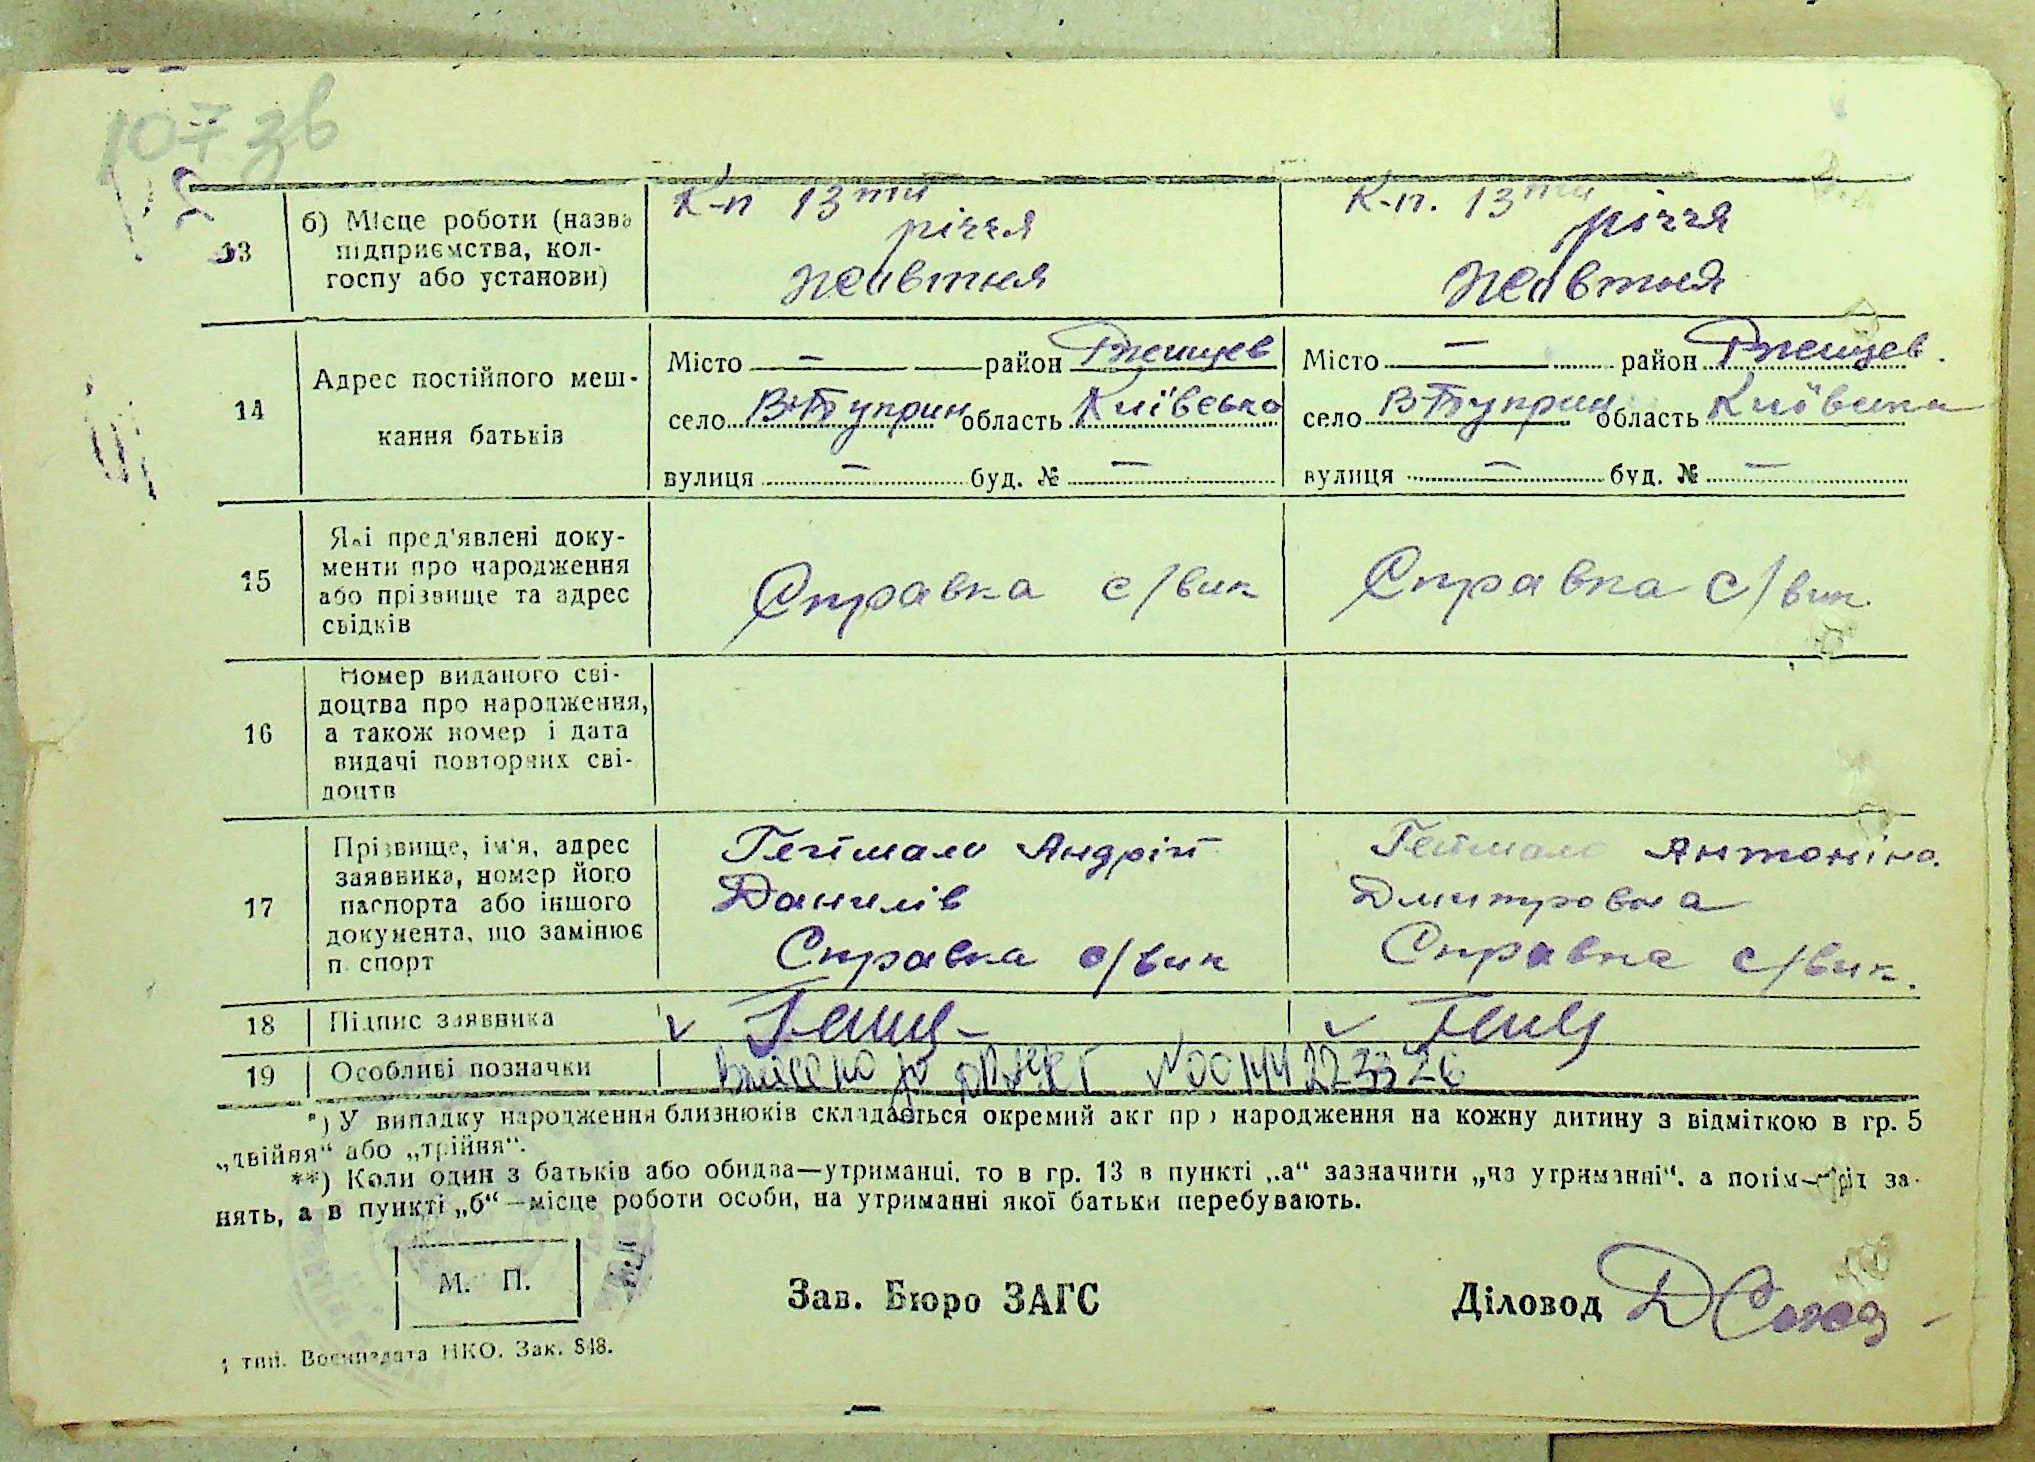 107 зв
13
б) Місце роботи (назва підприємства, колгоспу або установи)
К-п 13ти
річчя
Жовтня
К-п. 13ти
річчя
Жовтня
14
Адрес постійного мешкання батьків
Місто — район Ржищев
село В-Букрин область Київська
вулиця — буд. № —
Місто — район Ржищев.
село В-Букрин область Київська
вулиця — буд. № —
15
Які пред'явлені документи про народження або прізвище та адрес свідків
Справка с/вик
Справка с/вик.
16
Номер виданого свідоцтва про народження, а також номер і дата видачі повторних свідоцтв
17
Прізвище, ім'я, адрес заявника, номер його паспорта або іншого документа, що замінює паспорт
Андрій
Данилів
Справка с/вик
Антоніна.
Дмитровна
Справка с/вик.
18
Підпис заявника
19
Особливі позначки
Внесено до ДРАЦСГ №00144223326
*) У випадку народження близнюків складається окремий акт про народження на кожну дитину з відміткою в гр. 5
„двійня“ або „трійня“.
**) Коли один з батьків або обидва—утриманці, то в гр. 13 в пункті „а“ зазначити „на утриманні“, а потім—рід за-
нять, а в пункті „б“—місце роботи особи, на утриманні якої батьки перебувають.
М. П.
Зав. Бюро ЗАГС
Діловод
тип. Воениздата НКО. Зак. 848.